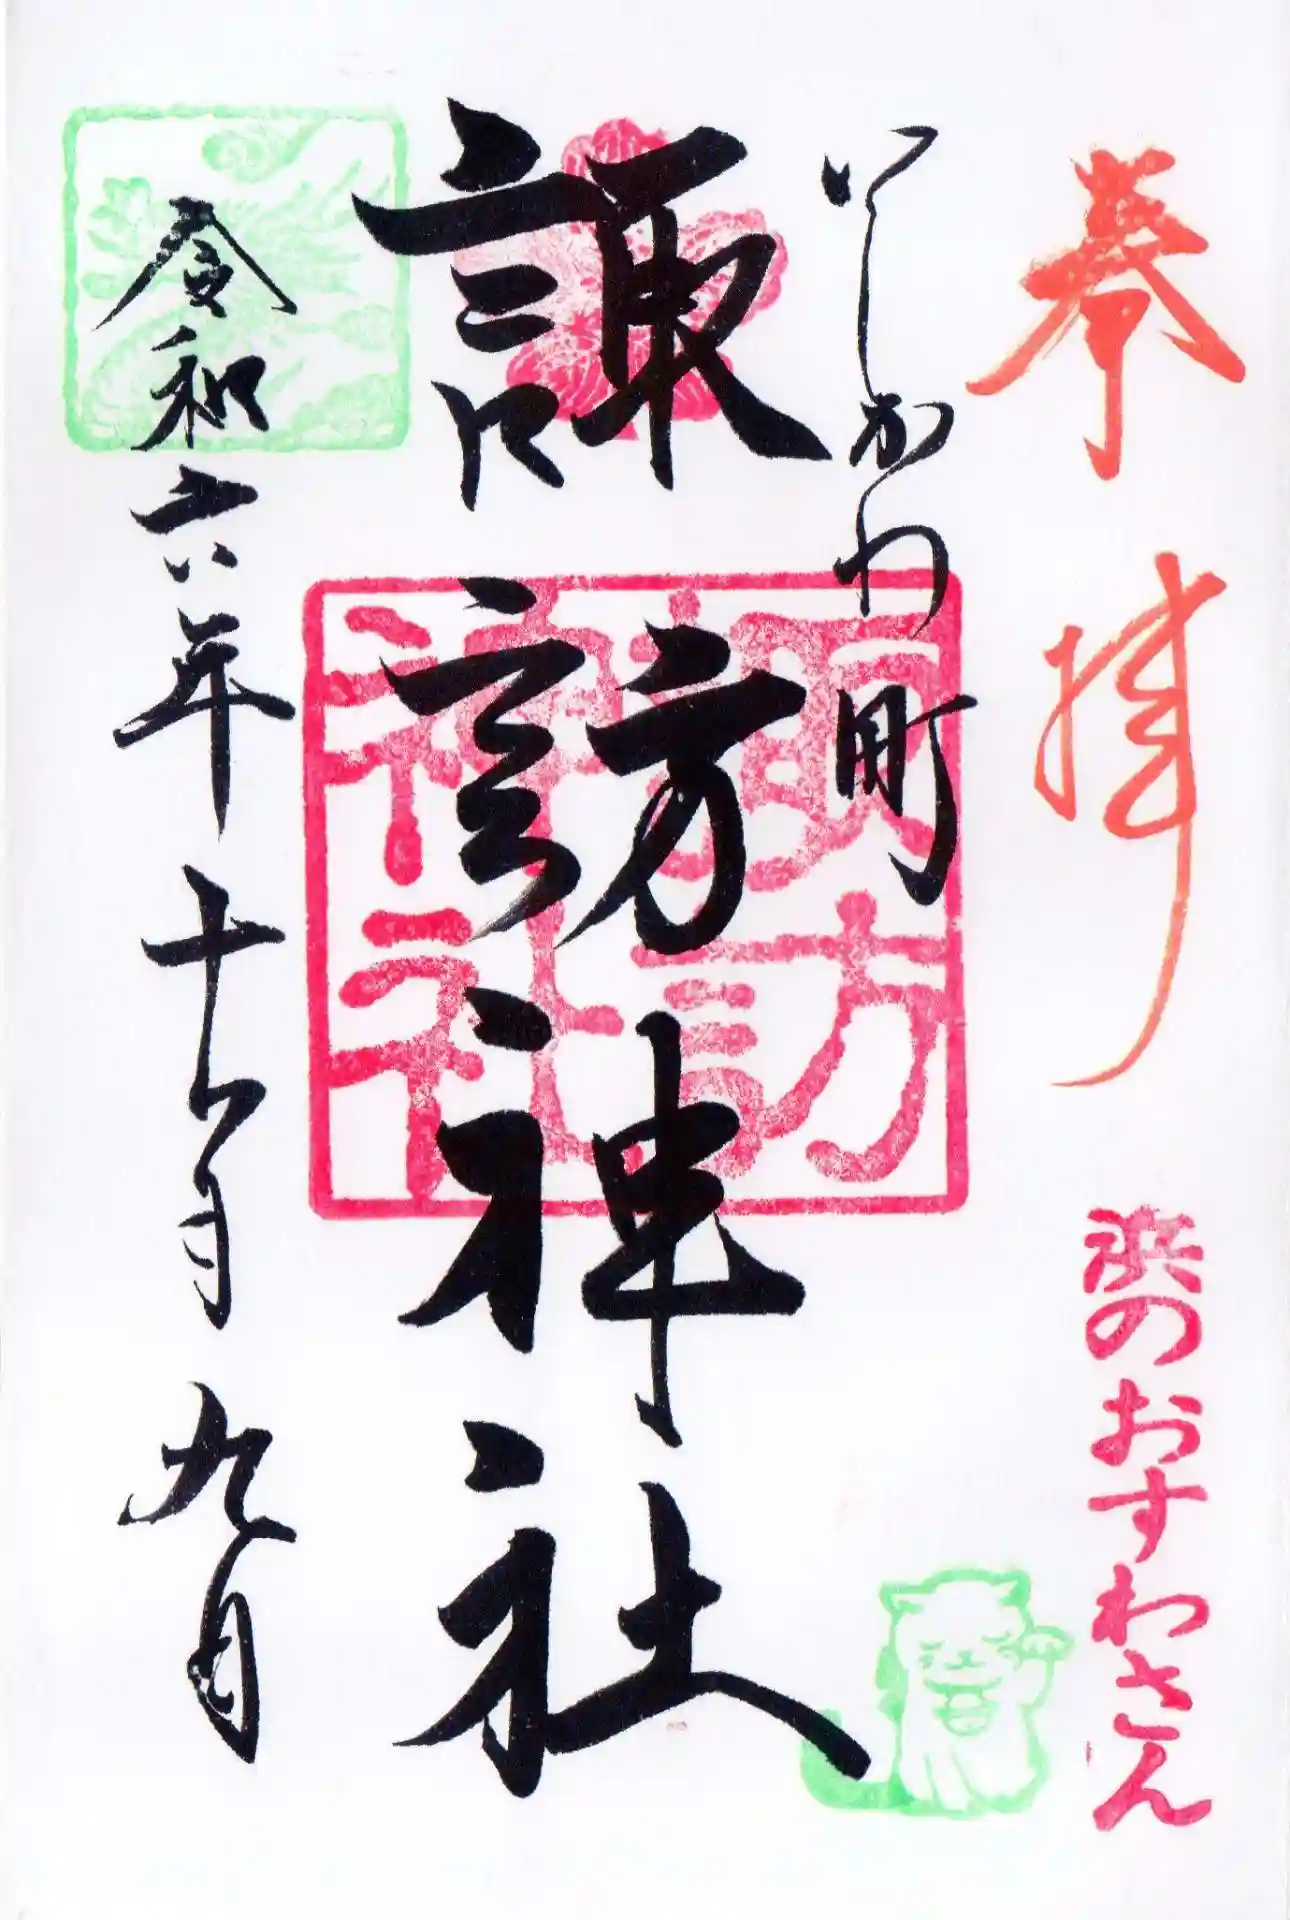 奉拝
浜のおすわさん
いしかわ町
諏訪神社
諏訪
神社
令和六年十月九日